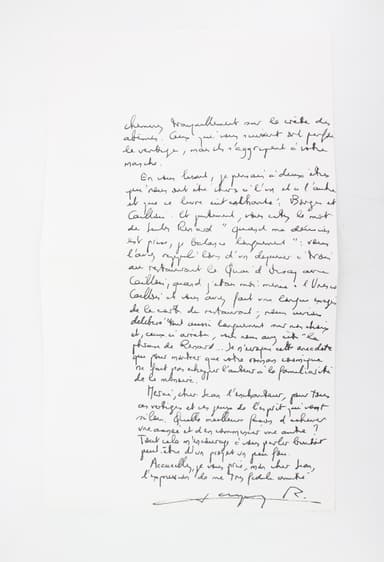 chemins tranquillement sur la crête des
abîmes. Ceux qui vous suivent ont parfois
le vertige, mais ils s'aggripent à votre
manche.
En vous lisant, je pensais à deux êtres
qui nous ont été chers à l'un et à l'autre
et que ce livre eût enthousiasmés : Borges et
Caillois. Et justement, vous citez le mot
de Jules Renard "quand ma décision
est prise, je balance longuement" : vous
l'avez rappelé lors d'un déjeuner à trois
au restaurant le Quai d'Orsay avec
Caillois, quand j'étais moi-même à l'Unesco
Caillois et vous aviez fait une longue
de la carte du restaurant ; nous avions
délibéré tout aussi longuement sur nos choix
et, ceux-ci arrêtés, vous nous avez cité la
phrase de Renard... Je n'évoque cette anecdote
que pour montrer que votre roman cosmique
ne fait pas échapper l'auteur à la familiarité
de la mémoire.
Merci, cher Jean l'enchanteur, pour tous
ces vertiges et ces jeux de l'esprit qui
Quelle meilleure façon d'achever
une année et d'en commencer une autre ?
Tout cela m'encourage à vous parler bientôt
peut-être d'un projet un peu fou.
Accueillez, je vous prie, mon cher Jean,
l'expression de ma très fidèle amitié
R.